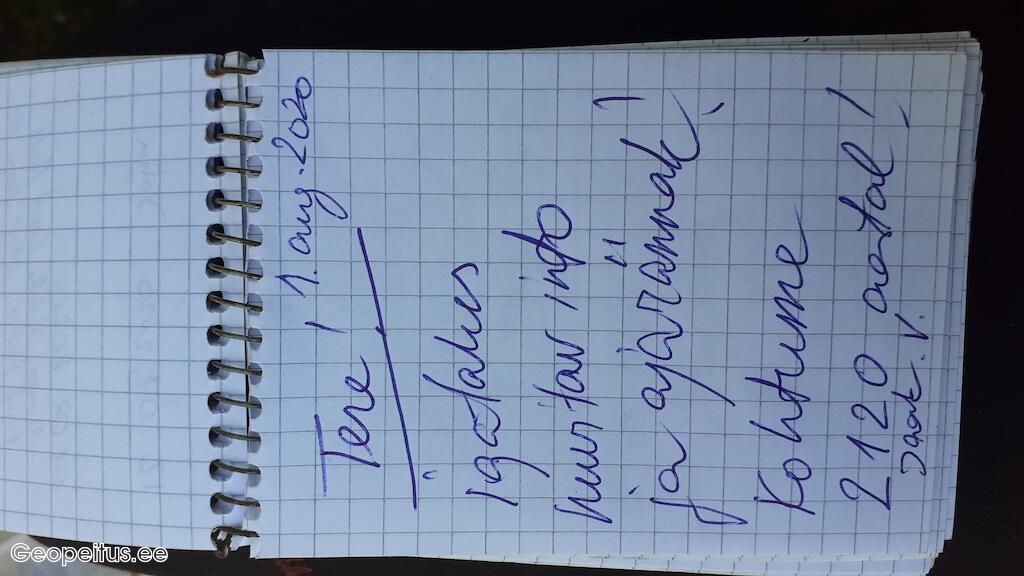 Tere ! 1. aug. 2020
igatahes
huvitav info
ja ajarännak!
Kohtume
2120 aastal!
Jaak. V.
Geopeitus.ee